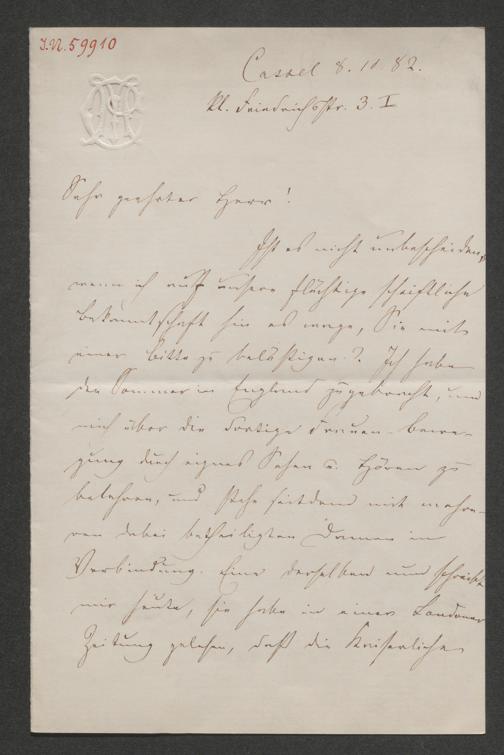 J.N. 59910
Cassel 8. 11 82.
kl. Friedrichsstr. 3. I
Sehr geehrter Herr!
Ist es nicht unbescheiden,
wenn ich auf unsere flüchtige schriftliche
Bekanntschaft hin es wage, Sie mit
einer Bitte zu belästigen? Ich habe
den Sommer in England zugebracht, um
mich über die dortige Frauen-bewe-
gung durch eignes Sehen u. Hören zu
belehren, und stehe seitdem mit mehre-
ren dabei betheiligten Damen in
Verbindung. Eine derselben nun schreibt
mir heute, sie habe in einer Londoner
Zeitung gelesen, daß die Kaiserliche